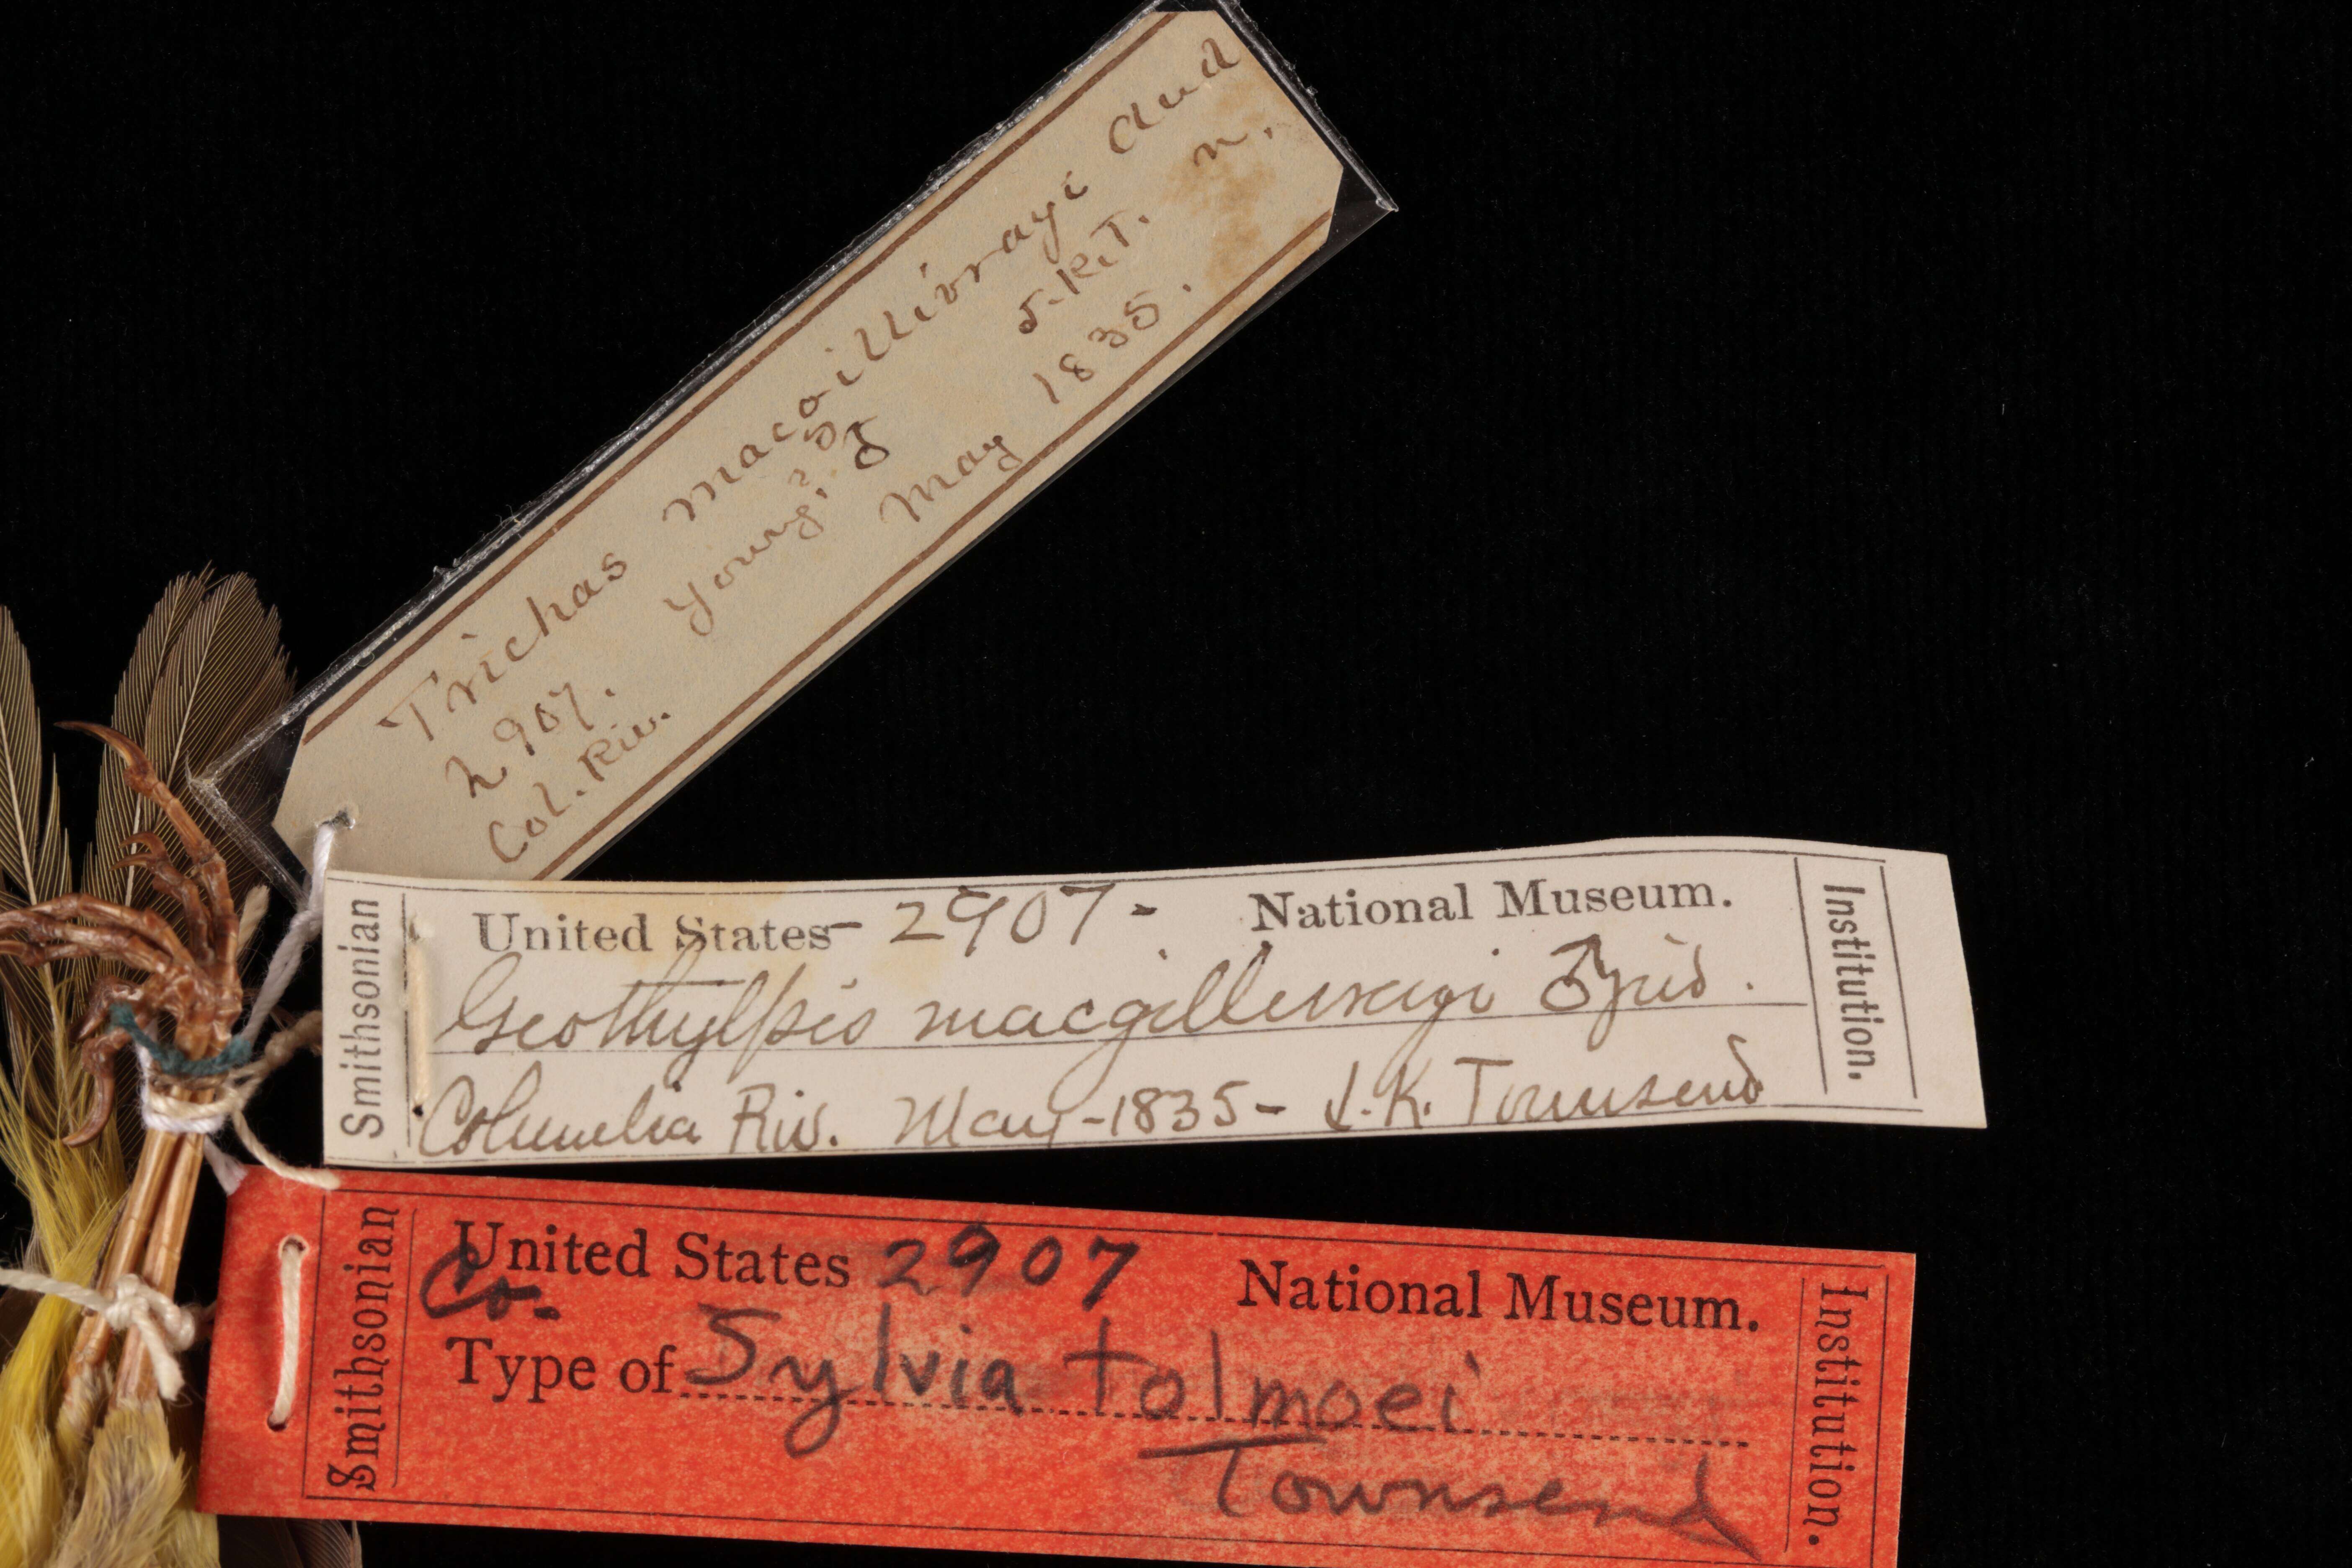 Trichas macgillivrayi Aud
2907. young? ♂ J.K.T. n.
Col. Riv. May 1835.
Smithsonian
United States - 2907 - National Museum.
Geothylpis macgillivrayi ♂ juv.
Columbia Riv. May - 1835 - J. K. Townsend
Institution.
Smithsonian
United States 2907 National Museum.
Co.
Type of Sylvia tolmoei
Townsend
Institution.